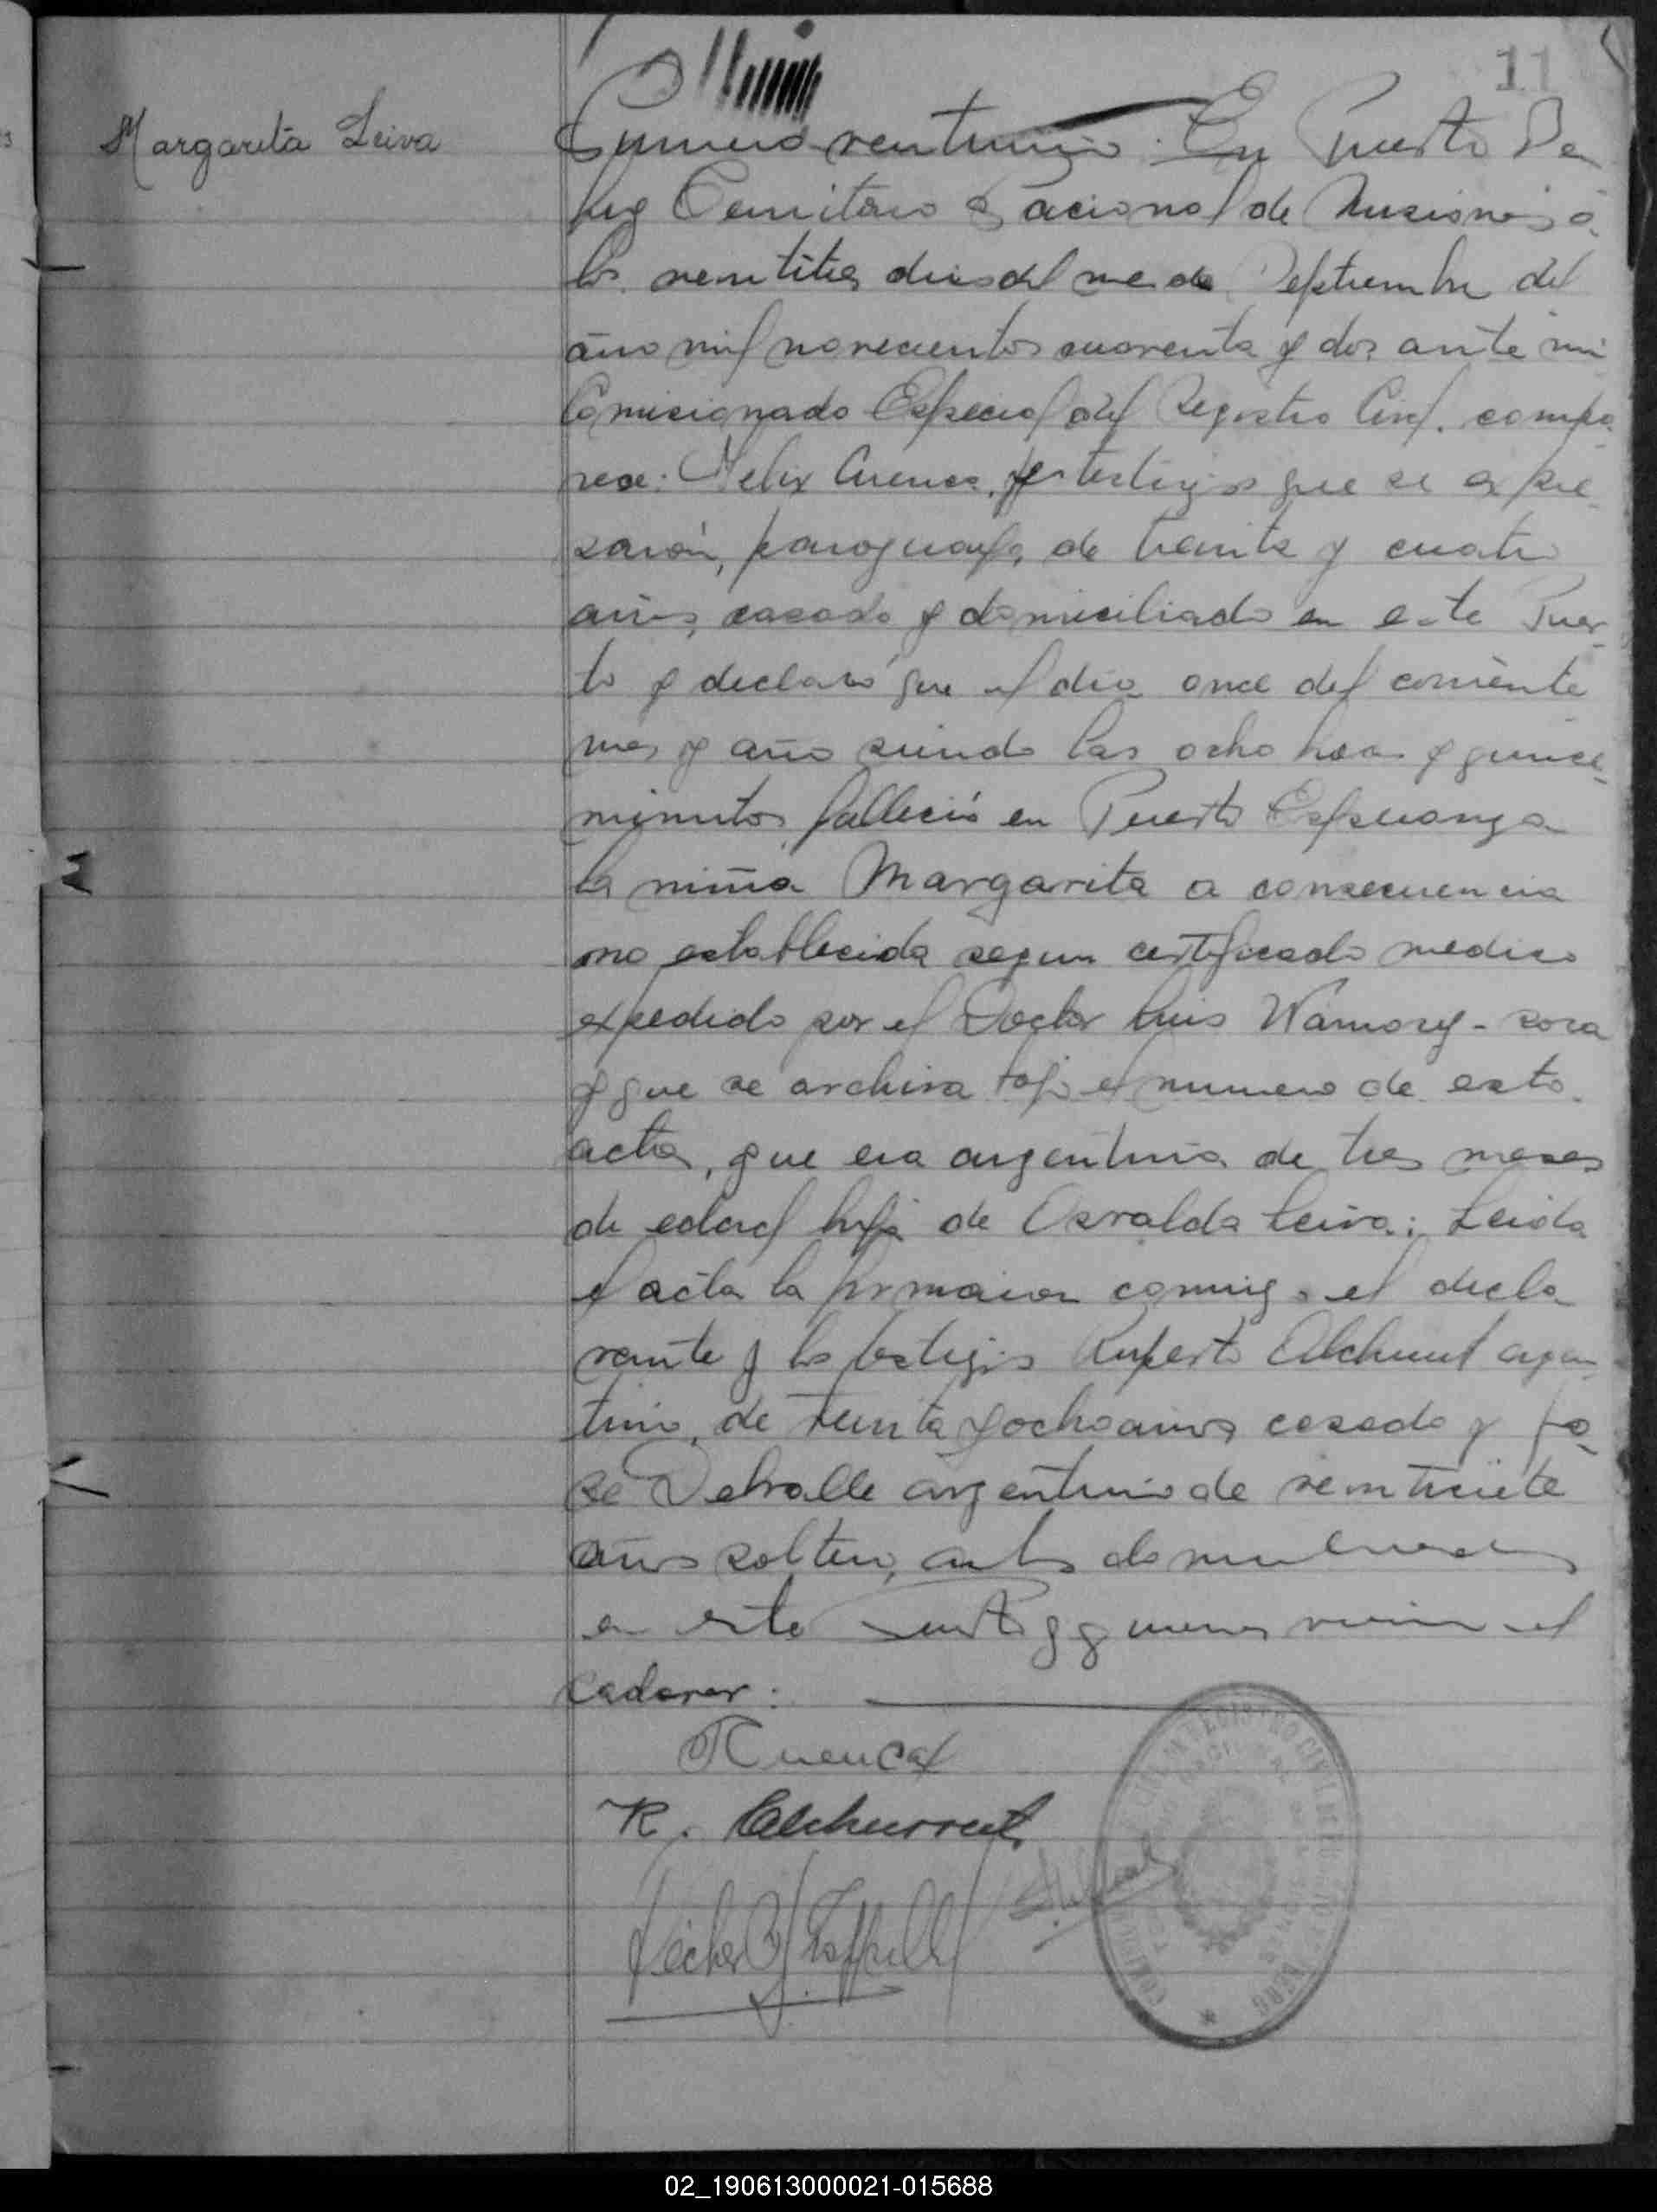 11
Margarita Leiva
Numero veintiuno. En Puerto De
Territorio Nacional de Misiones a
los veintitres dias del mes de Septiembre del
año mil novecientos cuarenta y dos ante mi
Comisionado Especial del Registro Civil. compa
rece: Felix Cuenca, testigos que se expre
saran, paraguayo, de treinta y cuatro
años, casado y domiciliado en este Puer-
to y declaró que el dia once del corriente
mes y año siendo las ocho horas y quince
minutos falleció en Puerto Esperanza
la niña Margarita a consecuencia
no establecida segun certificado medico
expedido por el Doctor Luis
y que se archiva bajo el numero de esta
acta, que era argentina de tres meses
de edad hija de Osvalda Leiva; Leida
el acta la firmaron conmigo el decla
rante y los testigos Ruperto argen
tino, de treinta y ocho años casado y Jo
se argentino de veintisiete
años soltero, ambos domiciliados
en este Puerto y quienes vieron el
cadaver:
Cuenca
R.